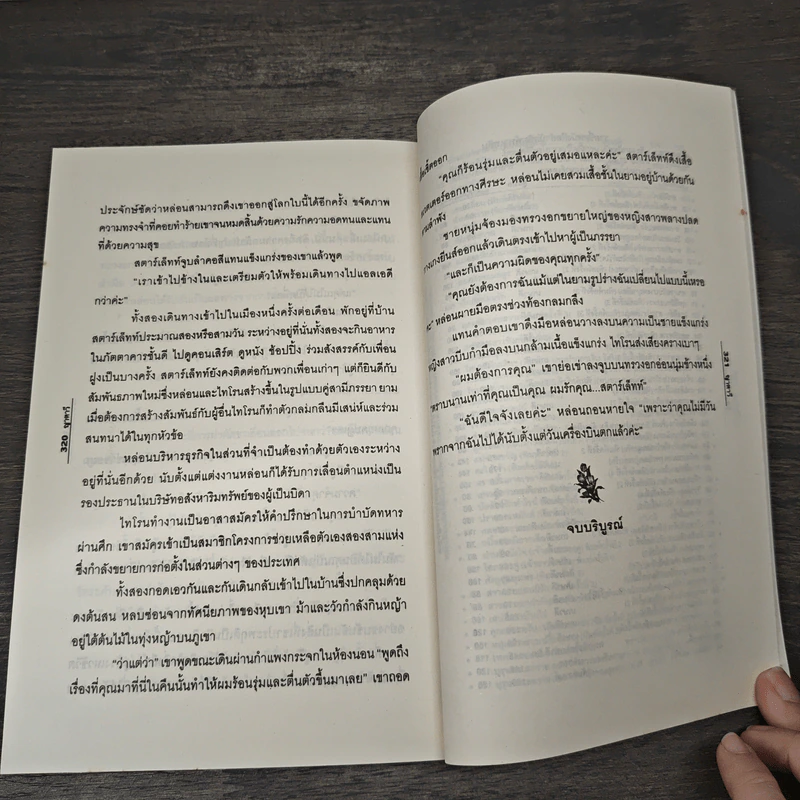 ประจักษ์ชัดว่าหล่อนสามารถดึงเขาออกสู่โลกใบนี้ได้อีกครั้ง ขจัดภาพ
ความทรงจำที่คอยทำร้ายเขาจนหมดสิ้นด้วยความรักความอดทนและแทน
ที่ด้วยความสุข
สตาร์เล็ทท์จูบลำคอสีแทนแข็งแกร่งของเขาแล้วพูด
"เราเข้าไปข้างในและเตรียมตัวให้พร้อมเดินทางไปแอลเอดี
กว่าค่ะ"
ทั้งสองเดินทางเข้าไปในเมืองหนึ่งครั้งต่อเดือน พักอยู่ที่บ้าน
สตาร์เล็ทท์ประมาณสองหรือสามวัน ระหว่างอยู่ที่นั่นทั้งสองจะกินอาหาร
ในภัตตาคารชั้นดี ไปดูคอนเสิร์ต ดูหนัง ช้อปปิ้ง ร่วมสังสรรค์กับเพื่อน
ฝูงเป็นบางครั้ง สตาร์เล็ทท์ยังคงติดต่อกับพวกเพื่อนเก่าๆ แต่ก็ยินดีกับ
สัมพันธภาพใหม่ซึ่งหล่อนและไทโรนสร้างขึ้นในรูปแบบคู่สามีภรรยา ยาม
เมื่อต้องการสร้างสัมพันธ์กับผู้อื่นไทโรนก็ทำตัวกลมกลืนมีเสน่ห์และร่วม
สนทนาได้ในทุกหัวข้อ
หล่อนบริหารธุรกิจในส่วนที่จำเป็นต้องทำด้วยตัวเองระหว่าง
อยู่ที่นั่นอีกด้วย นับตั้งแต่แต่งงานหล่อนก็ได้รับการเลื่อนตำแหน่งเป็น
รองประธานในบริษัทอสังหาริมทรัพย์ของผู้เป็นบิดา
ไทโรนทำงานเป็นอาสาสมัครให้คำปรึกษาในการบำบัดทหาร
ผ่านศึก เขาสมัครเข้าเป็นสมาชิกโครงการช่วยเหลือตัวเองสองสามแห่ง
ซึ่งกำลังขยายการก่อตั้งในส่วนต่างๆ ของประเทศ
ทั้งสองกอดเอวกันและกันเดินกลับเข้าไปในบ้านซึ่งปกคลุมด้วย
ดงต้นสน หลบซ่อนจากทัศนียภาพของหุบเขา ม้าและวัวกำลังกินหญ้า
อยู่ใต้ต้นไม้ในทุ่งหญ้าบนภูเขา
"ว่าแต่ว่า" เขาพูดขณะเดินผ่านกำแพงกระจกในห้องนอน "พูดถึง
เรื่องที่คุณมาที่นี่ในคืนนั้นทำให้ผมร้อนรุ่มและตื่นตัวขึ้นมาเลย" เขาถอด
320 ยูคาวี่
เสื้อเชิ้ตออก
"คุณก็ร้อนรุ่มและตื่นตัวอยู่เสมอแหละค่ะ" สตาร์เล็ทท์ดึงเสื้อ
ออกทางศีรษะ หล่อนไม่เคยสวมเสื้อชั้นในยามอยู่บ้านด้วยกัน
ตามลำพัง
ชายหนุ่มจ้องมองทรวงอกขยายใหญ่ของหญิงสาวพลางปลด
กางเกงยีนส์ออกแล้วเดินตรงเข้าไปหาผู้เป็นภรรยา
"และก็เป็นความผิดของคุณทุกครั้ง"
"คุณยังต้องการฉันแม้แต่ในยามรูปร่างฉันเปลี่ยนไปแบบนี้เหรอ
คะ" หล่อนผายมือตรงช่วงท้องกลมกลึง
แทนคำตอบเขาดึงมือหล่อนวางลงบนความเป็นชายแข็งแกร่ง
หญิงสาวบีบกำมือลงบนกล้ามเนื้อแข็งแกร่ง ไทโรนส่งเสียงครางเบาๆ
"ผมต้องการคุณ" เขาย่อเข่าลงจูบบนทรวงอกอ่อนนุ่มข้างหนึ่ง
"ตราบนานเท่าที่คุณเป็นคุณ ผมรักคุณ...สตาร์เล็ทท์"
"ฉันดีใจจังเลยค่ะ" หล่อนถอนหายใจ "เพราะว่าคุณไม่มีวัน
พรากจากฉันไปได้นับตั้งแต่วันเครื่องบินตกแล้วค่ะ"
จบบริบูรณ์
321